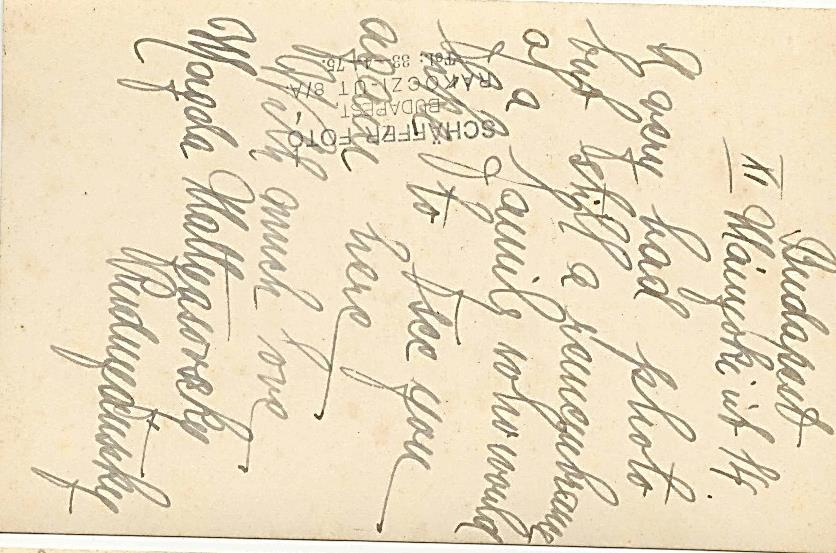 Budapest
XI Mányoki út 14.
A very bad photo
but still a remembrance
of a family who would
like to see you
again here
With much love
Magda Mattyasovszky
SCHÄFFER FOTÓ
BUDAPEST
RÁKÓCZI-UT 8/A.
Tel.: